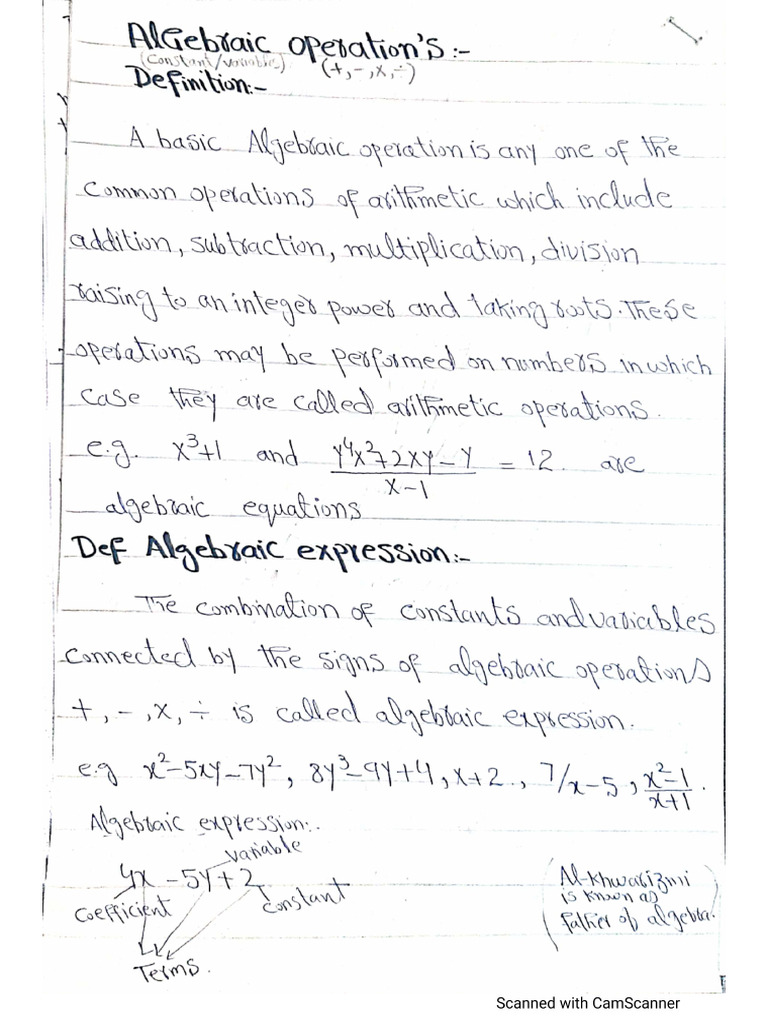 Algebraic operation's :-
(Constant/variable) (+, -, x, ÷)
Definition:-
A basic Algebraic operation is any one of the
common operations of arithmetic which include
addition, subtraction, multiplication, division
raising to an integer power and taking roots. These
operations may be performed on numbers in which
case they are called arithmetic operations.
e.g. x³+1 and (y⁴x²+2xy-y)/(x-1) = 12. are
algebraic equations
Def Algebraic expression:-
The combination of constants and variables
connected by the signs of algebraic operations
+, -, x, ÷ is called algebraic expression.
e.g x²-5xy-7y², 8y³-9y+4, x+2, 7/x-5, (x²-1)/(x+1).
Algebraic expression:.
variable
4x - 5y + 2
coefficient constant
Terms.
Al-khwarizmi
is known as
father of algebra.
Scanned with CamScanner